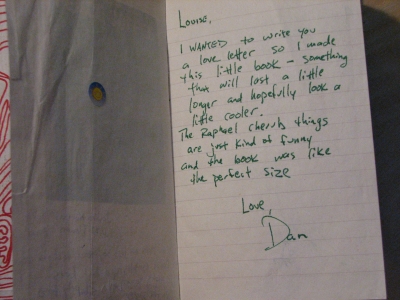 Louise,
I WANTED to write you
a love letter so I made
this little book - something
that will last a little
longer and hopefully look a
little cooler.
The Raphael cherub things
are just kind of funny
and the book was like
the perfect size
Love,
Dan